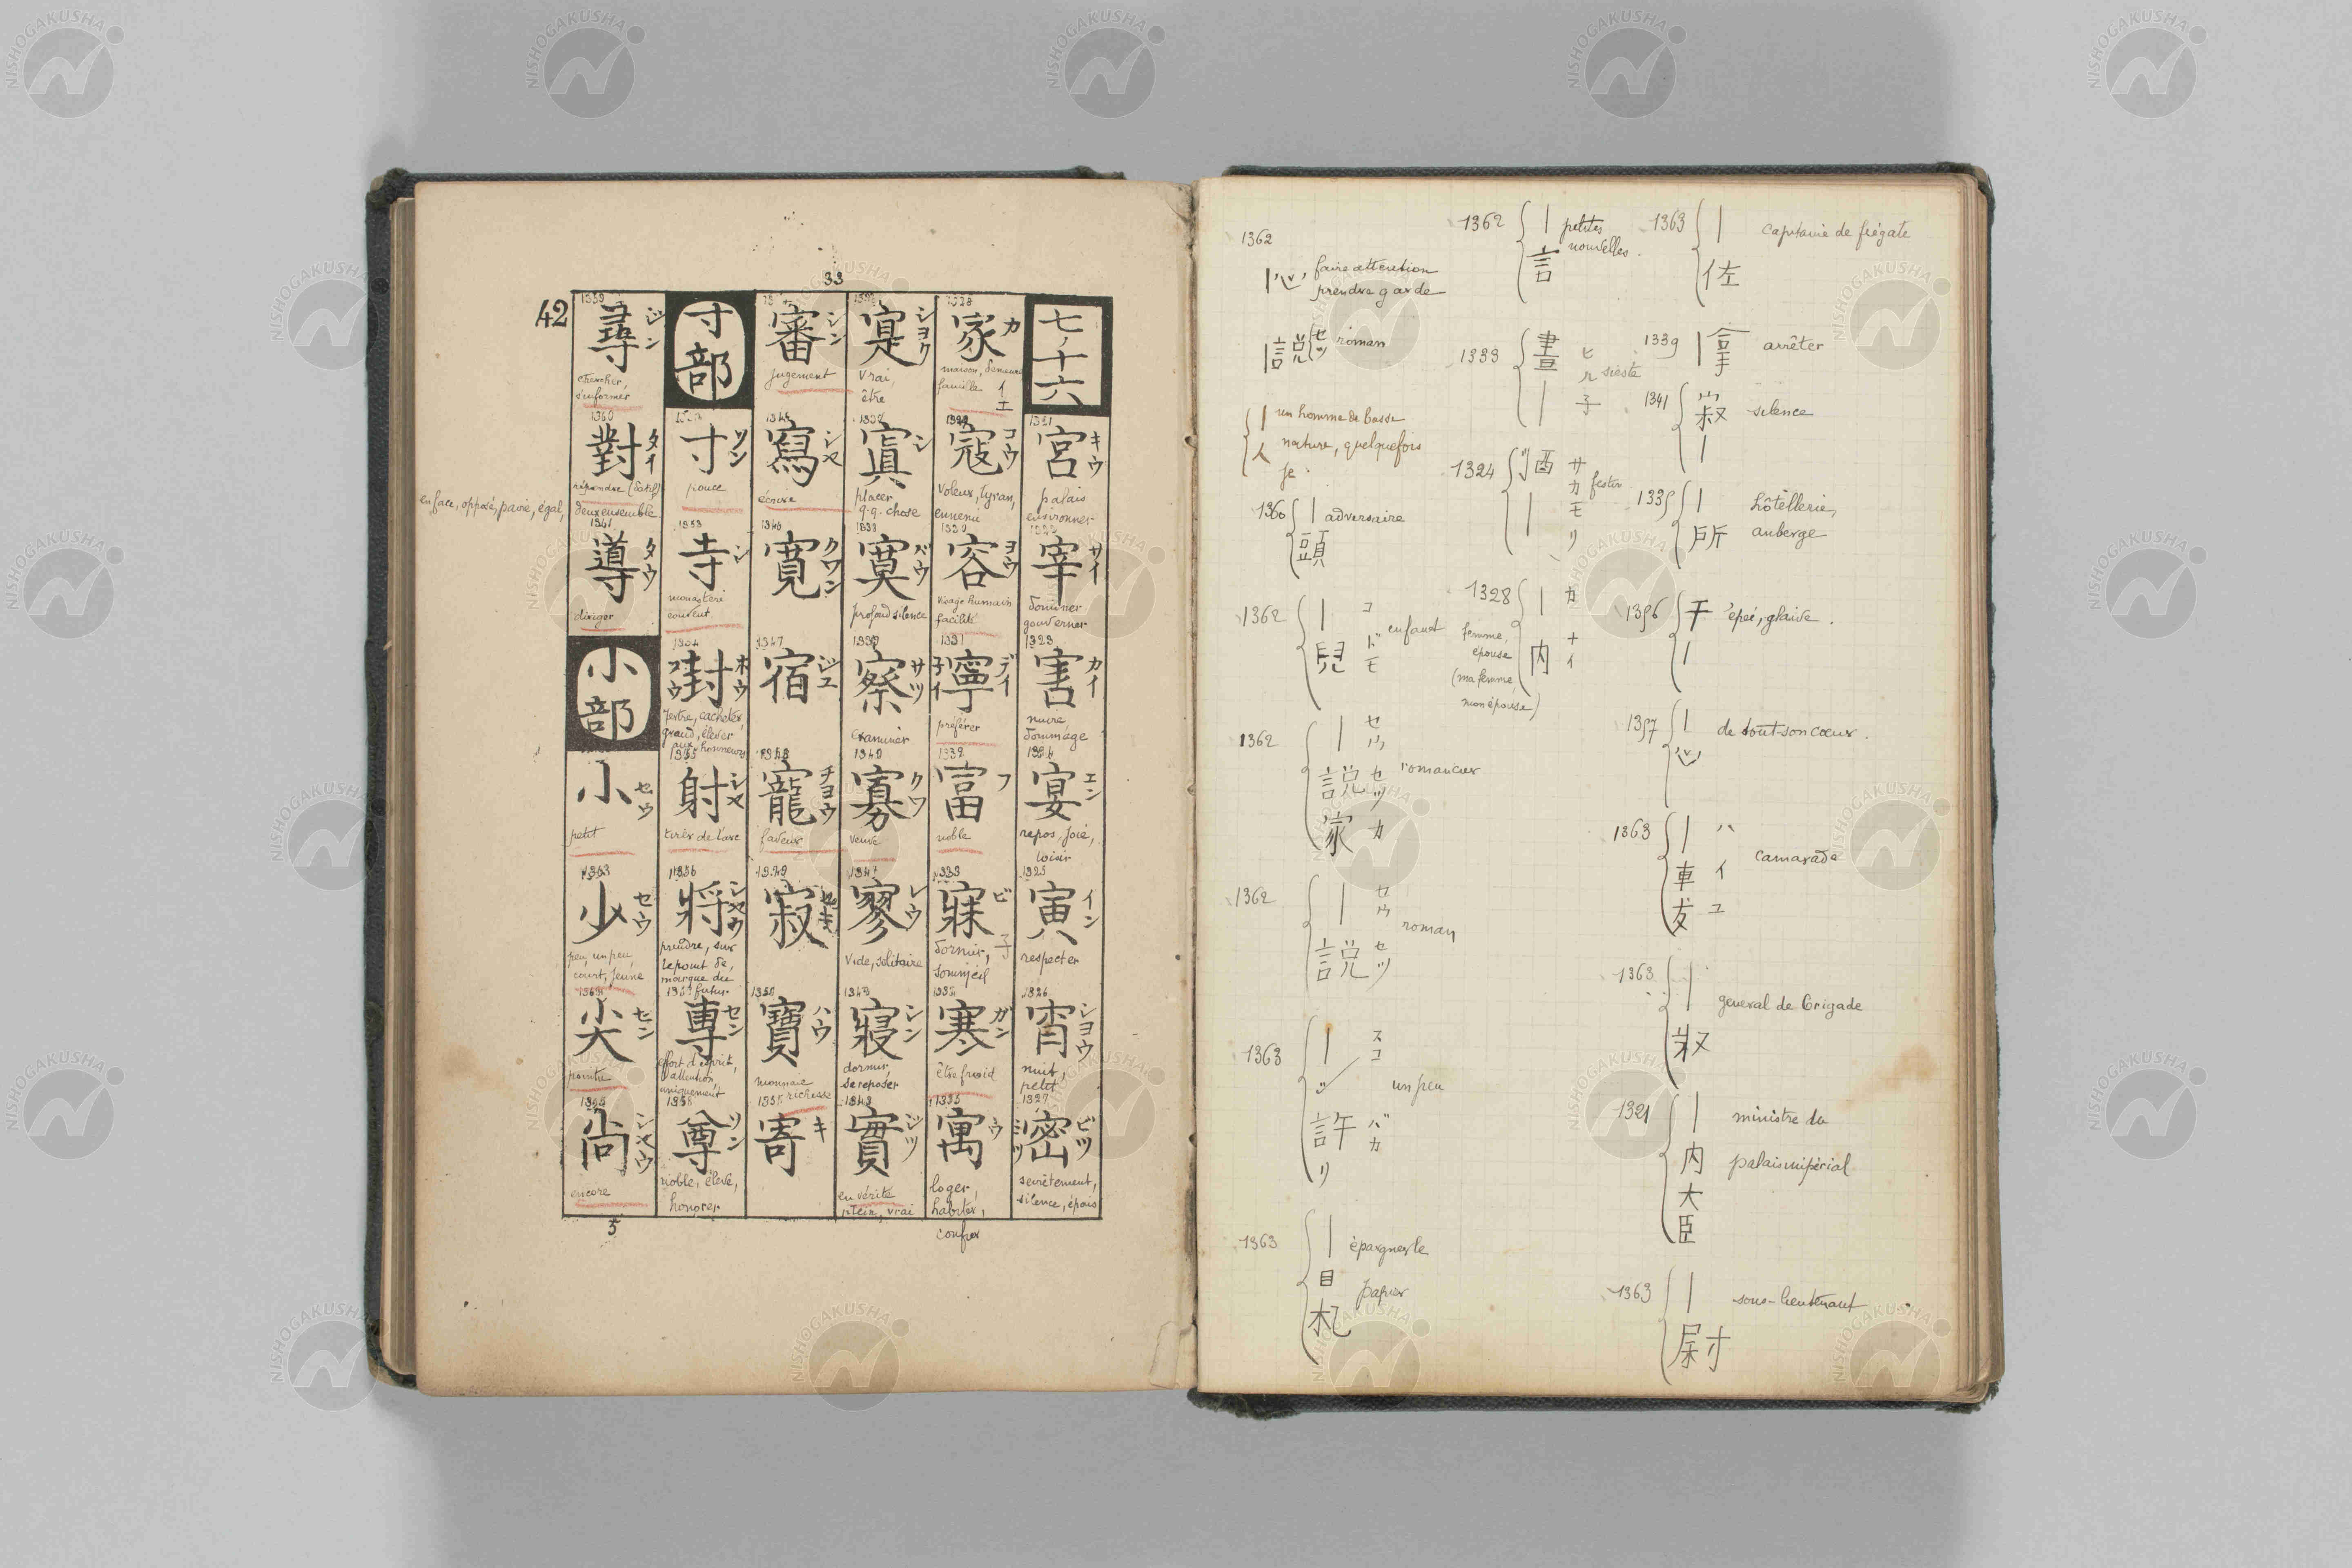 33
42
七ノ十六
1321
宮 キウ
palais
environner
宰 サイ
dominer
gouverner
1323
害 カイ
nuire,
dommage
1324
宴 エン
repos, joie,
loisir
1325
寅 イン
respecter
1326
宵 シヨウ
nuit,
petit
1327
密 ビツ ミツ
secrètement,
silence, épais
1328
家 カ イエ
maison, demeure
famille
1329
寇 コウ
voleur, tyran,
ennemi
1330
容 ヨウ
visage humain
facilité
1331
寧 デイ 子イ
préférer
1332
富 フ
noble
1333
寐 ビ
dormir,
sommeil
寒 カン
être froid
1335
寓 ウ
loger,
habiter,
confier
寔 シヨク
vrai,
être
1337
寘 シ
placer
q.q. chose
1338
寞 バウ
profond silence
察 サツ
examiner
1340
寡 クワ
veuve
寥 レウ
vide, solitaire
寢 シン
dormir,
se reposer
1343
實 ジツ
en vérité
plein, vrai
審 シン
jugement
1345
寫 シヤ
écrire
1346
寛 クワン
1347
宿 シユ
1348
寵 チヨウ
faveur
1349
寂 セキ
1350
寶 ハウ
monnaie
richesse
寄 キ
寸部
寸 ソン
pouce
1353
寺 シ
monastère
couvent
1354
封 ホウ フウ
grand, élever
aux honneurs
1355
射 シヤ
tirer de l'arc
1356
將 シヤウ
prendre, sur
le point de,
marque du
futur
專 セン
effort d'esprit,
attention,
uniquement
1358
尊 ソン
noble, élevé,
honorer
1359
尋 ジン
chercher,
s'informer
1360
對 タイ
répondre (datif)
deux ensemble
en face, opposé, paire, égal,
導 タウ
diriger
小部
小 セウ
petit
1363
少 セウ
peu, un peu,
court, jeune
尖 セン
pointu
尚 シヤウ
encore
5
1362
|心 faire attention
prendre garde
|説 セツ roman
| un homme de basse
人 nature, quelquefois
je.
1360 | adversaire
頭
1362 | コ
兒 ドモ enfant
1362 | セウ
説 セツ romancier
家 カ
1362 | セウ
説 セツ roman
1363 | スコ
許 バカ un peu
リ
1363 | épargner le
目 papier
札
1362 | petites
言 nouvelles.
1333 晝 ヒル sieste
| 子
1324 酒 サカ fester
| モリ
1328 | カ
内 ナイ
femme,
épouse
(ma femme,
mon épouse)
1363 | capitaine de frégate
佐
1339 | 拿 arrêter
1341 寂 silence
|
1335 | hôtellerie,
所 auberge
1356 干 épée, glaive.
|
1357 | de tout son cœur.
心
1363 | ハ
車 イ camarade
友 ユ
1363 |
général de brigade
将
1321 | ministre du
内 palais impérial
大
臣
1363 | sous-lieutenant
尉